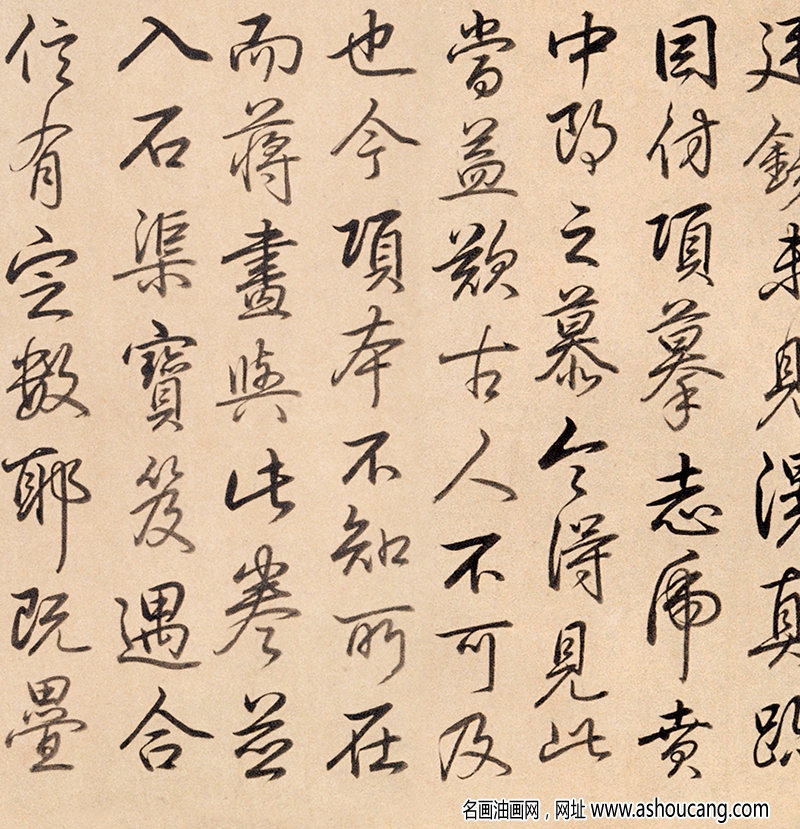 廷錫未見真跡
因仿項摹志虎賁
中郎之慕今得見此
當益歎古人不可及
也今項本不知所在
而蔣畫與此卷並
入石渠寶笈遇合
信有定數耶既疊
名画油画网，网址 www.ashoucang.com